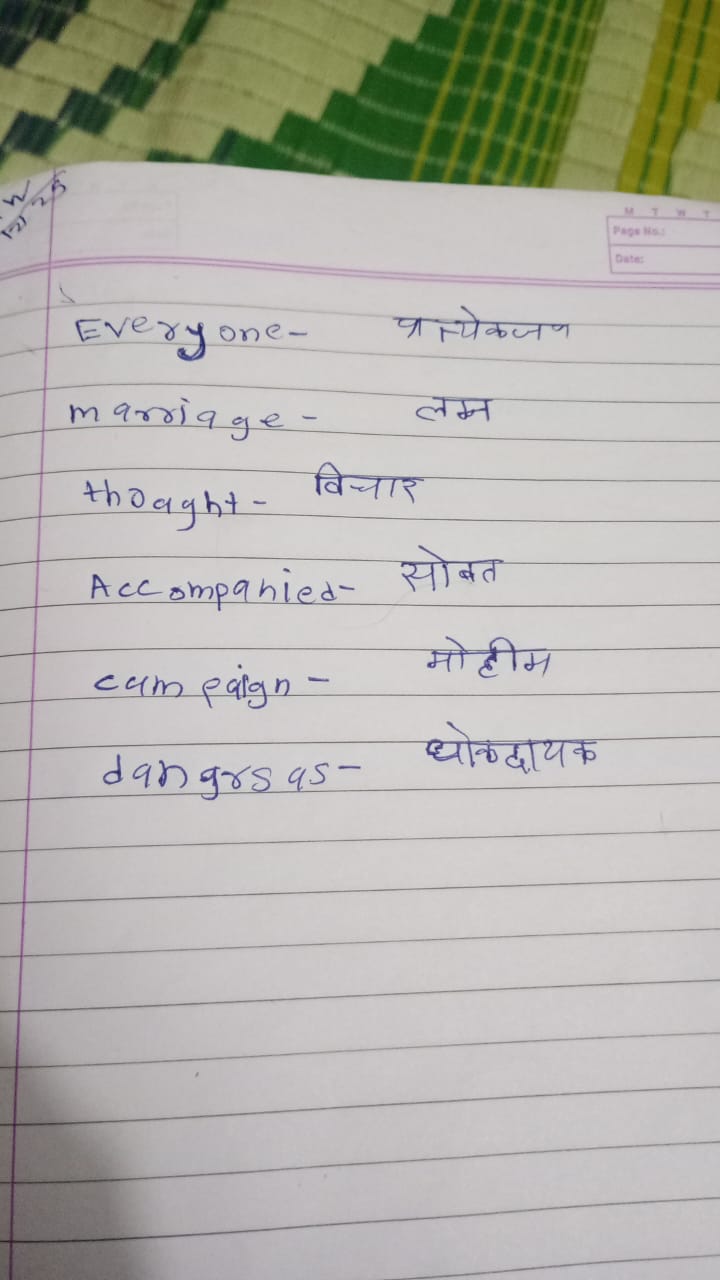 M T W T
Page No.:
Date:
Everyone - प्रत्येकजण
marriage - लग्न
thoaght - विचार
Accompanied - सोबत
campaign - मोहीम
dangrsas - धोकदायक